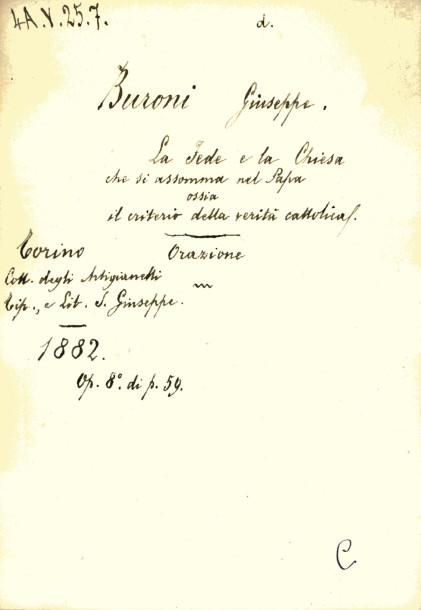 4A.V.25.7. d.
Buroni Giuseppe.
La Fede e la Chiesa
che si assomma nel Papa
ossia
il criterio della verità cattolica.
Torino Orazione
Coll. degli Artigianelli
Tip., e Lit. S. Giuseppe.
1882.
Op. 8° di p. 59.
C